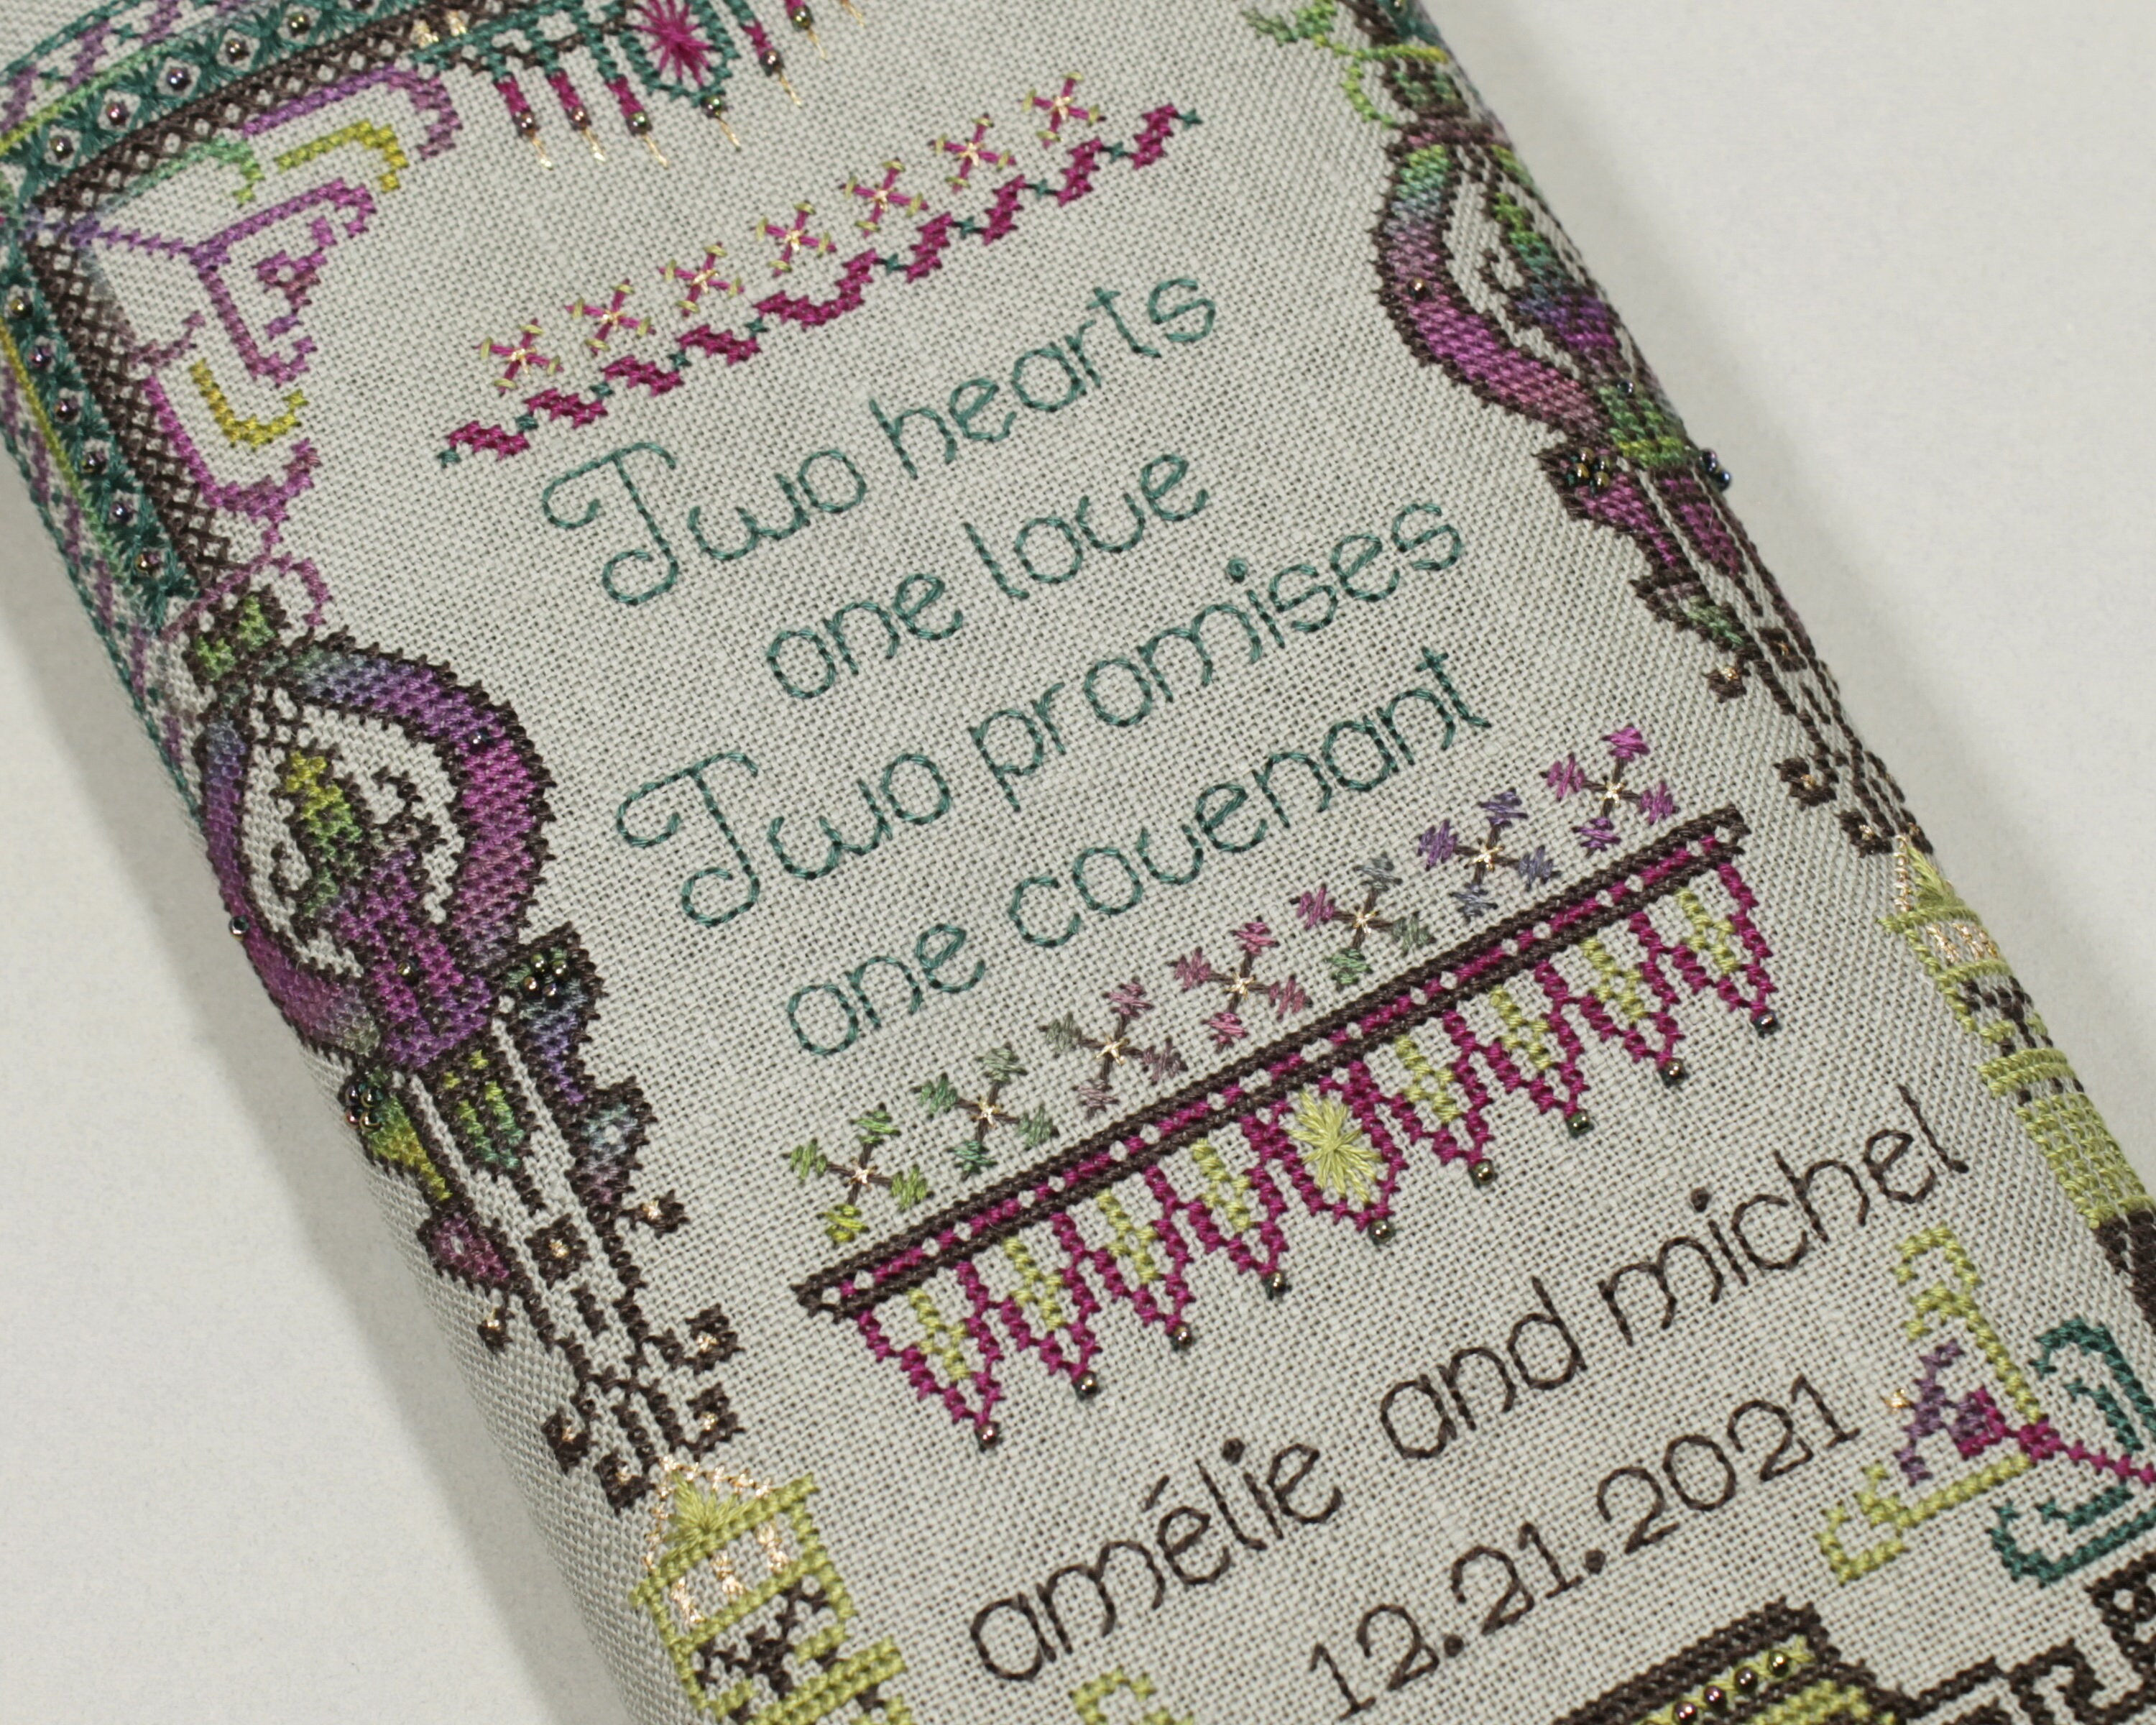 Two hearts
one love
Two promises
one covenant
amélie and michel
12.21.2021